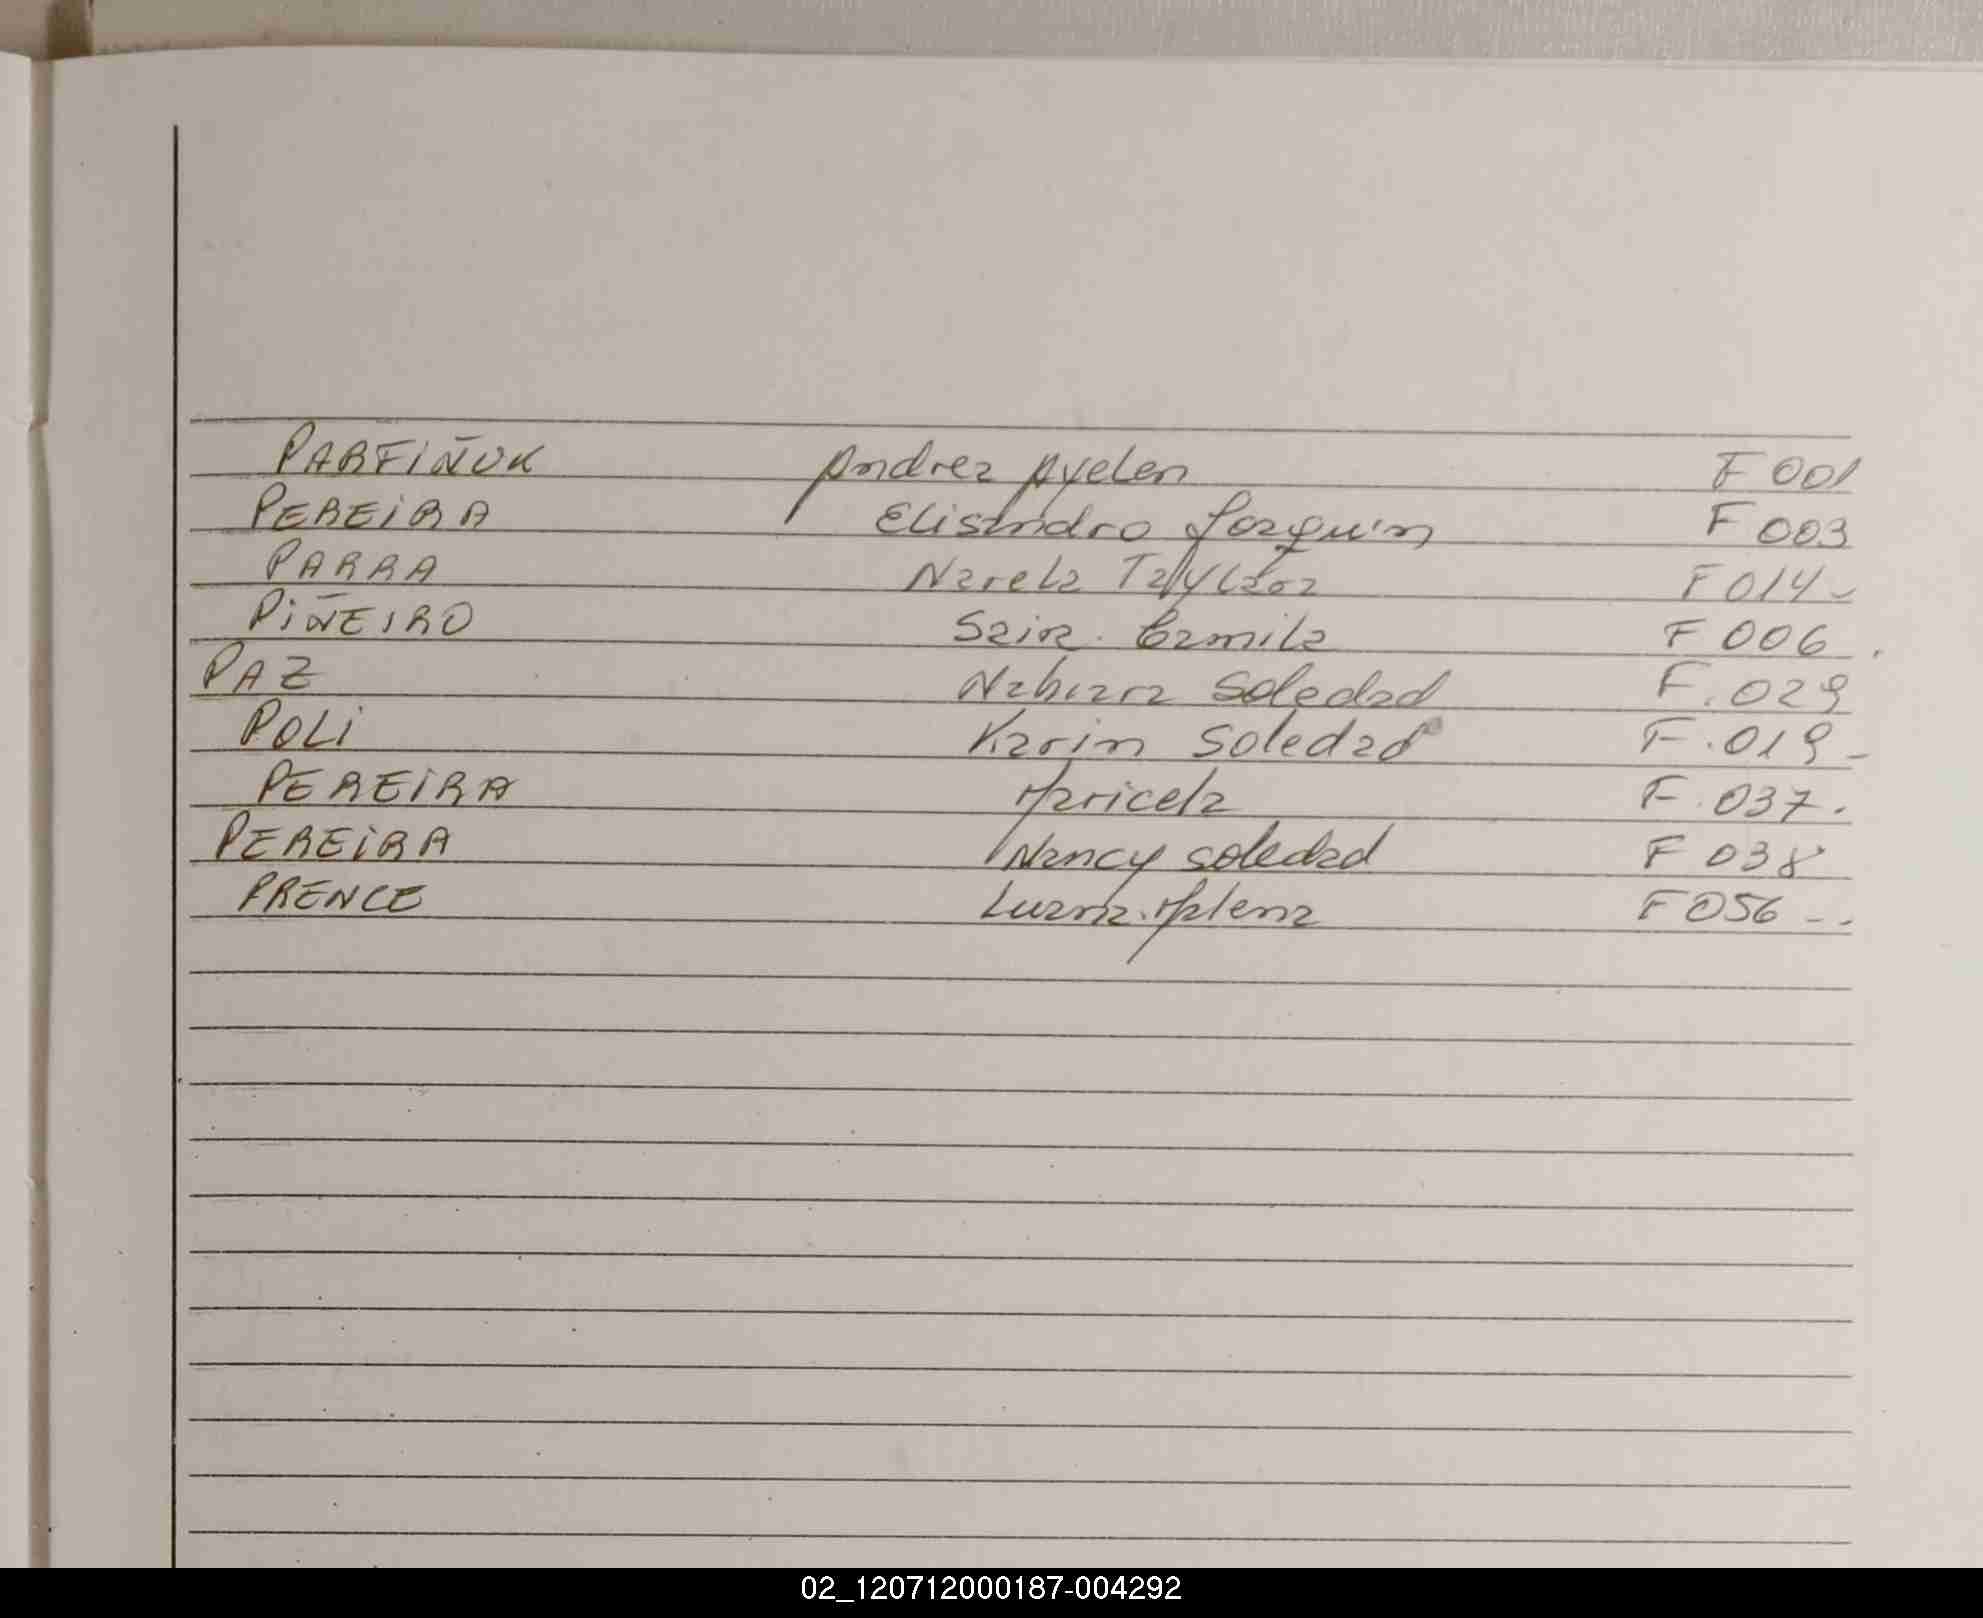 PARFIÑUK Andrea Ayelen F 001
PEREIRA Elisandro Joaquin F 003
PARRA Narela F 014-
PIÑEIRO Saira. Camila F 006.
PAZ Soledad F. 029
POLI Karin Soledad F. 019-
PEREIRA Maricela F. 037.
PEREIRA Nancy Soledad F 038
PRENCE Luana. Malena F 056 - -
02_120712000187-004292